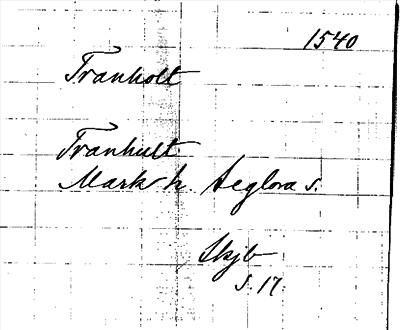 1540
Tranholt
Tranhult
Mark h. Seglora s.
Skjb
s. 17.